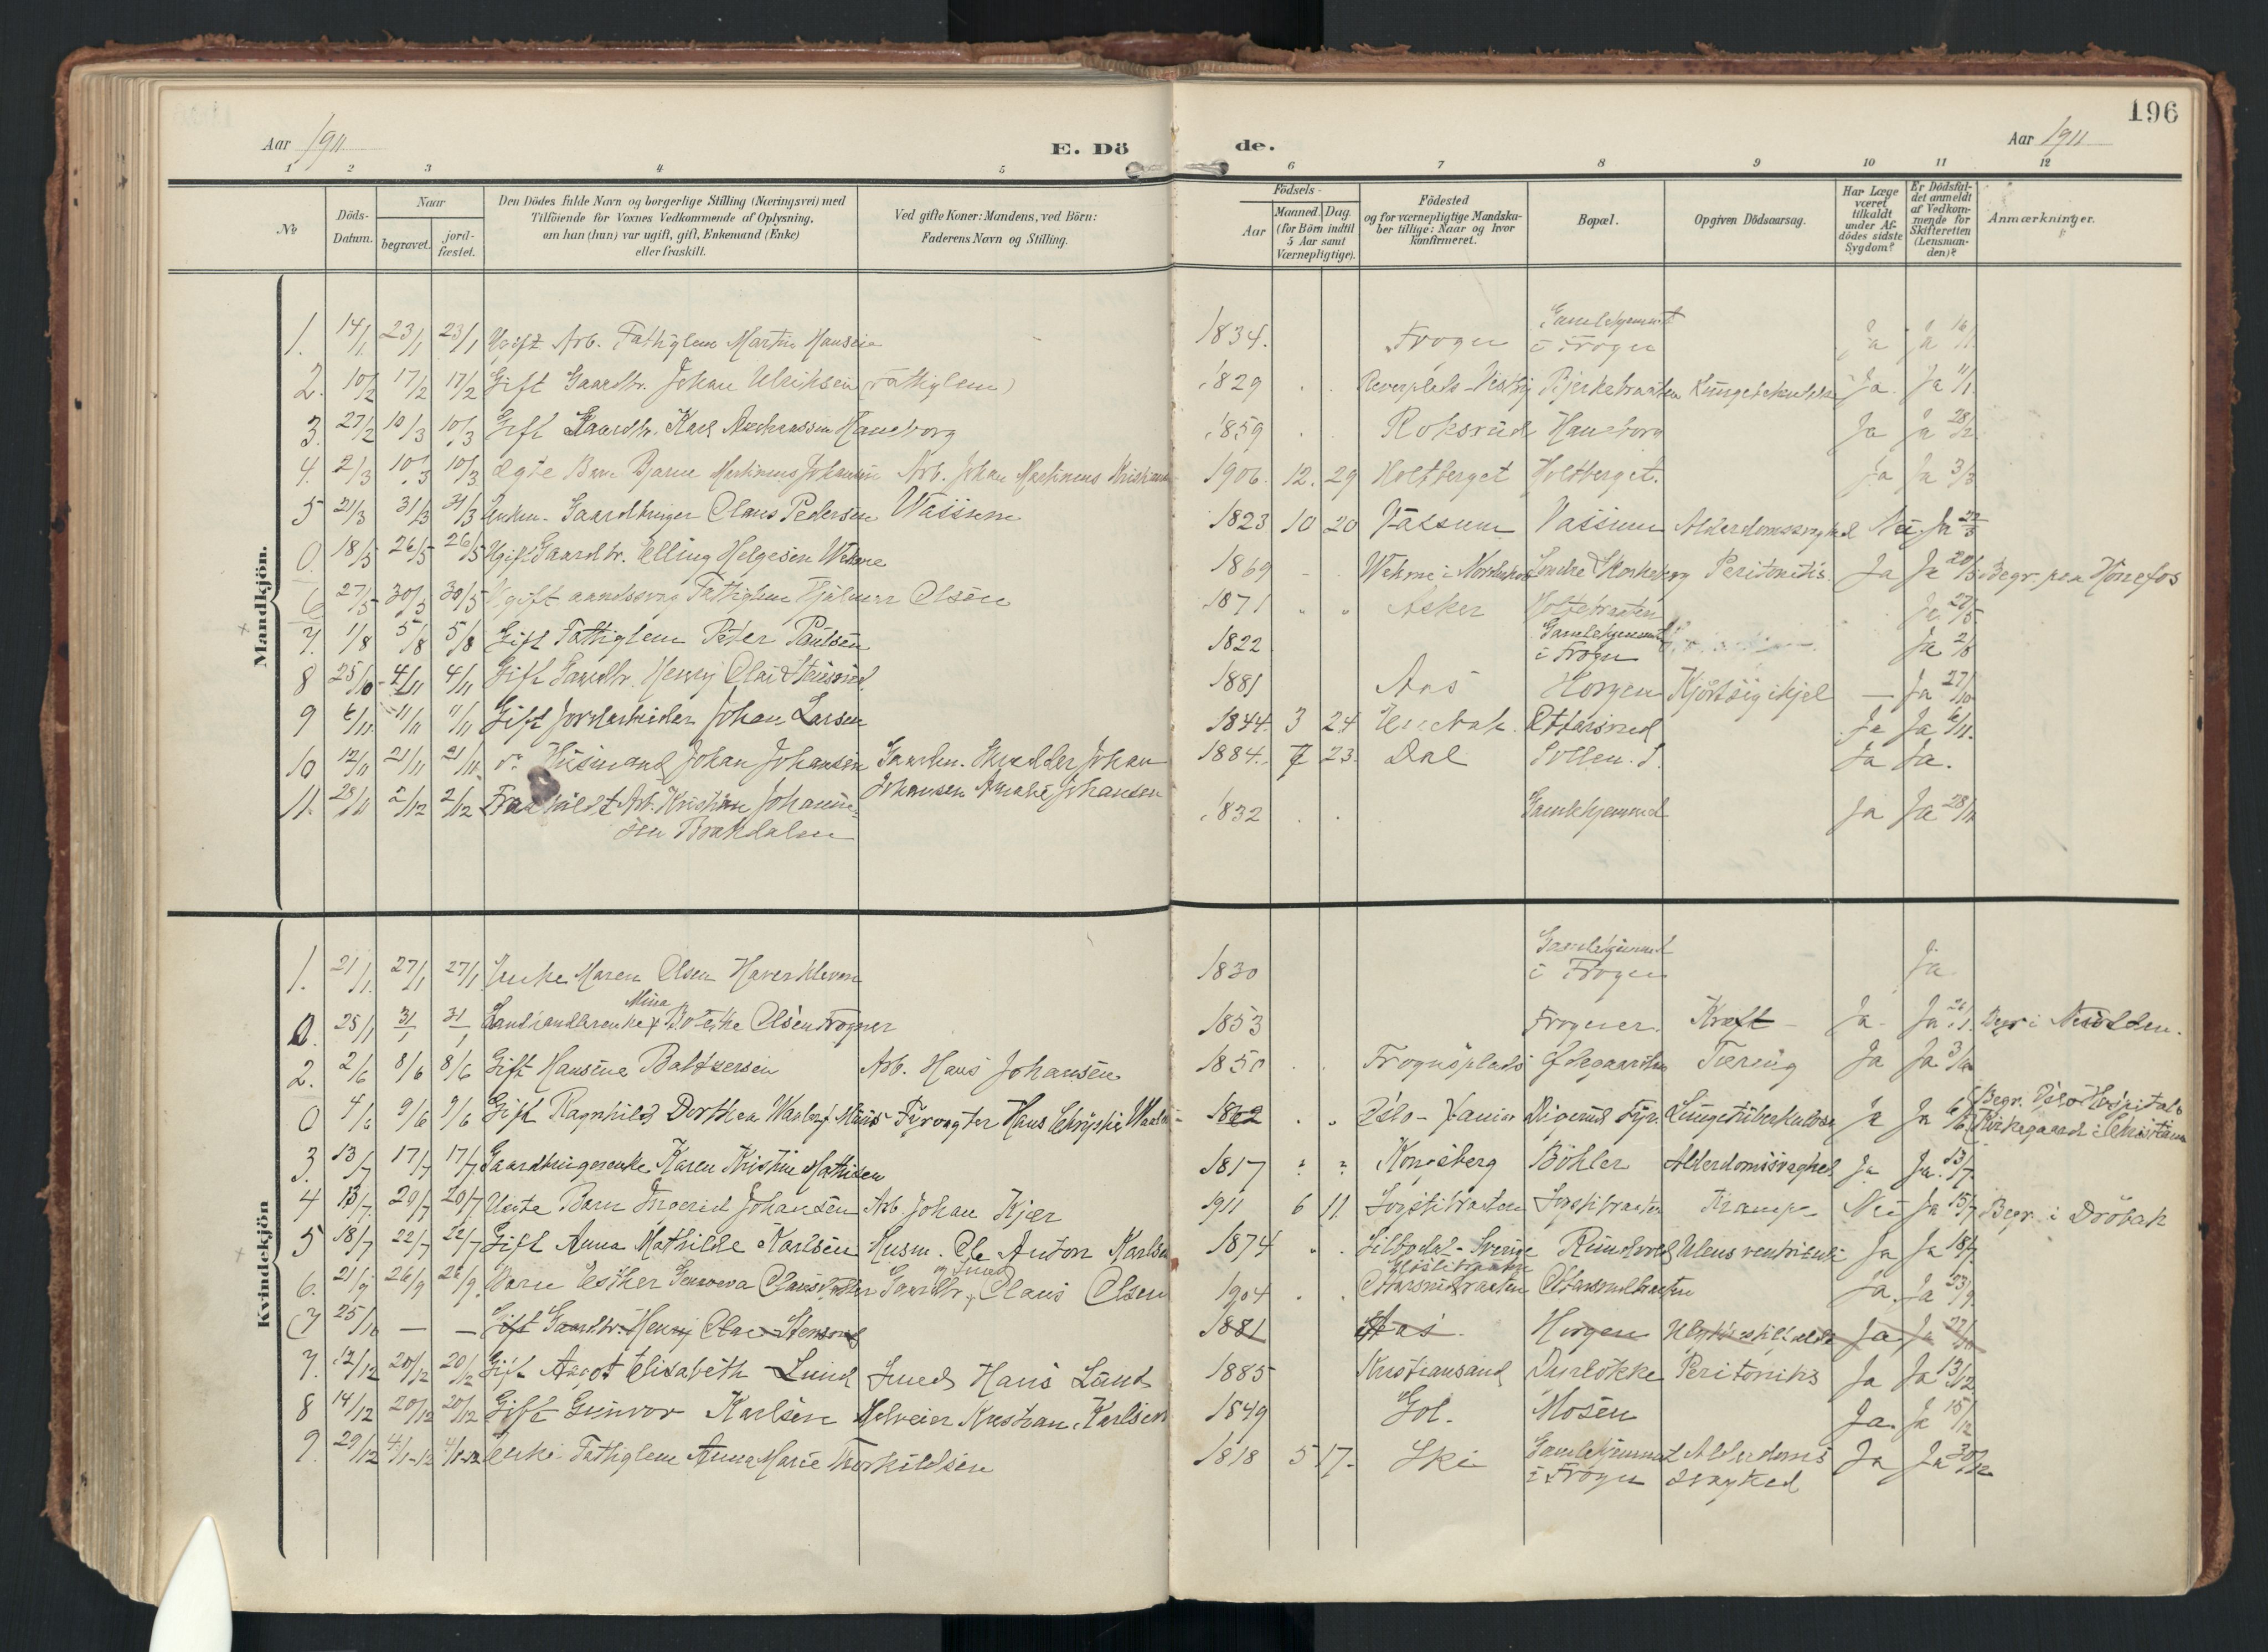 196
Aar 1911
E. Dö
de.
Aar 1911
1 2 3 4 5 6 7 8 9 10 11 12
№
Döds-Datum.
Naar
begravet.
jord-fæstet.
Den Dödes fulde Navn og borgerlige Stilling (Næringsvei) med
Tilföiende for Voxnes Vedkommende af Oplysning,
om han (hun) var ugift, gift, Enkemand (Enke)
eller fraskilt.
Ved gifte Koner: Mandens, ved Börn:
Faderens Navn og Stilling.
Födsels-
Aar
Maaned. Dag.
(for Börn indtil
5 Aar samt
Værnepligtige).
Födested
og for værnepligtige Mandska-
ber tillige: Naar og hvor
konfirmeret.
Bopæl.
Opgiven Dödsaarsag.
Har Læge
været
tilkaldt
under Af-
dödes sidste
Sygdom?
Er Dödsfal-
det anmeldt
af Vedkom-
mende for
Skifteretten
(Lensman-
den)?
Anmærkninger.
Mandkjön.
1. 14/1 23/1 23/1 Ugift Arb. Fattiglem Martin Hansen 1834. Frogn Gamlehjemmet i Frogn Ja Ja 16/1
2. 10/2 17/2 17/2 Gift Gaardbr. Johan Ulriksen (Fattiglem) 1829 Ja Ja 11/1
3. 27/2 10/3 10/3 Gift Gaardbr. Karl Andreassen Haneborg 1859 Roksrud Haneborg Ja Ja 28/2
4. 2/3 10/3 10/3 Ægte Barn Bjarne Martinius Johansen Arb. Johan Martinius 1906. 12. 29 Holtberget Holtberget. Ja Ja 3/3
5 21/3 31/3 31/3 Enkem. Gaardbruger Claus Pedersen Vassum 1823 10 20 Vassum Vassum Alderdomssvaghed Nei Ja 22/3
0. 18/5 26/5 26/5 Ugift Gaardbr. Elling Helgesen Wekme 1869 Peritonitis. Ja Ja 20/5 Begr. paa Hönefos
6 27/5 30/5 30/5 Ugift aandssvag Fattiglem Hjalmar Olsen 1871 Asker Holtebraaten Ja 27/5
7. 1/8 5/8 5/8 Gift Fattiglem Peter Paulsen 1822 Gamlehjemmet i Frogn Ja 2/8
8 25/10 4/11 4/11 Gift Gaardbr. Henry Olai Stensrud. 1881 Aas Horgen - Ja 27/10
9 6/11 11/11 11/11 Gift Jordarbeider Johan Larsen 1844. 3 24 Ottarsrud Ja Ja 6/11.
10 12/11 21/11 21/11 Husmand Johan Johansen Johan 1884. 7 23. Dal Sollen. S. Ja Ja.
Johansen Amalie Johansen
11. 28/11 2/12 2/12 Fraskildt Arb. Kristian Johannes-
sen Brækdalen 1832 Gamlehjemmet Ja Ja 28/11
Kvindekjön
1. 21/1. 27/1 27/1. Enke Maren Olsen Haverkleven 1830 Gamlehjemmet i Frogn Ja.
0. 25/1 31/1 31/1 Landhandlerenke Mina Olsen Frogner 1853 Frogner. Kræft - Ja. Ja 26/1. Begr. i Nesodden.
2. 2/6 8/6 8/6 Gift Hansine Baltzersen Arb. Hans Johansen 1850 Frognsplads Ødegaarden Tæring Ja Ja 3/6
0 4/6 9/6 9/6 Gift Ragnhild Dorthea Fyrvogter Hans 1862 Digerud Fyr. Lungetuberkulose Ja Ja 6/6 Begr. Oslo Hospitals
Kirkegaard i Christiania
3. 13/7 17/7 17/7 Gaardbrugerenke Karen Kristine Mathisen 1817 Kongsberg Böhler Alderdomssvaghed Ja Ja. 13/7.
4 13/7. 20/7 20/7 Uægte Barn Ingerid Johansen Arb. Johan Kjær 1911 6 11. Krampe Nei Ja 15/7 Begr. i Dröbak
5 18/7 22/7 22/7 Gift Anna Mathilde Karlsen Husm. Ole Anton Karlsen 1874 Silbodal - Sverige Ulcus ventriculi Ja Ja 18/7.
6. 21/9 26/9 26/9. Barn Esther Genoveva Gaardbr. og Smed Claus Olsen 1904 Ottarsrudbraaten Ottarsrudbraaten Ja. Ja 23/9.
7 25/10 — — Gift Gaardbr. Henry Olai Stensrud 1881 Aas. Horgen Ja. Ja 27/10
7. 12/12 20/12 20/12 Gift Aagot Elisabeth Lund Smed Hans Lund 1885 Kristiansand Dyrlökke Peritonitis Ja Ja 13/12
8 14/12 20/12 20/12 Gift Gunvor Karlsen Kristian Karlsen 1849 Gol. Mosen Ja. Ja 15/12
9. 29/12 4/1-12 4/1-12 Enke Fattiglem Anna Marie Thorkildsen 1818 5 17. Ski Gamlehjemmet i Frogn Alderdomssvaghed Ja Ja 30/12